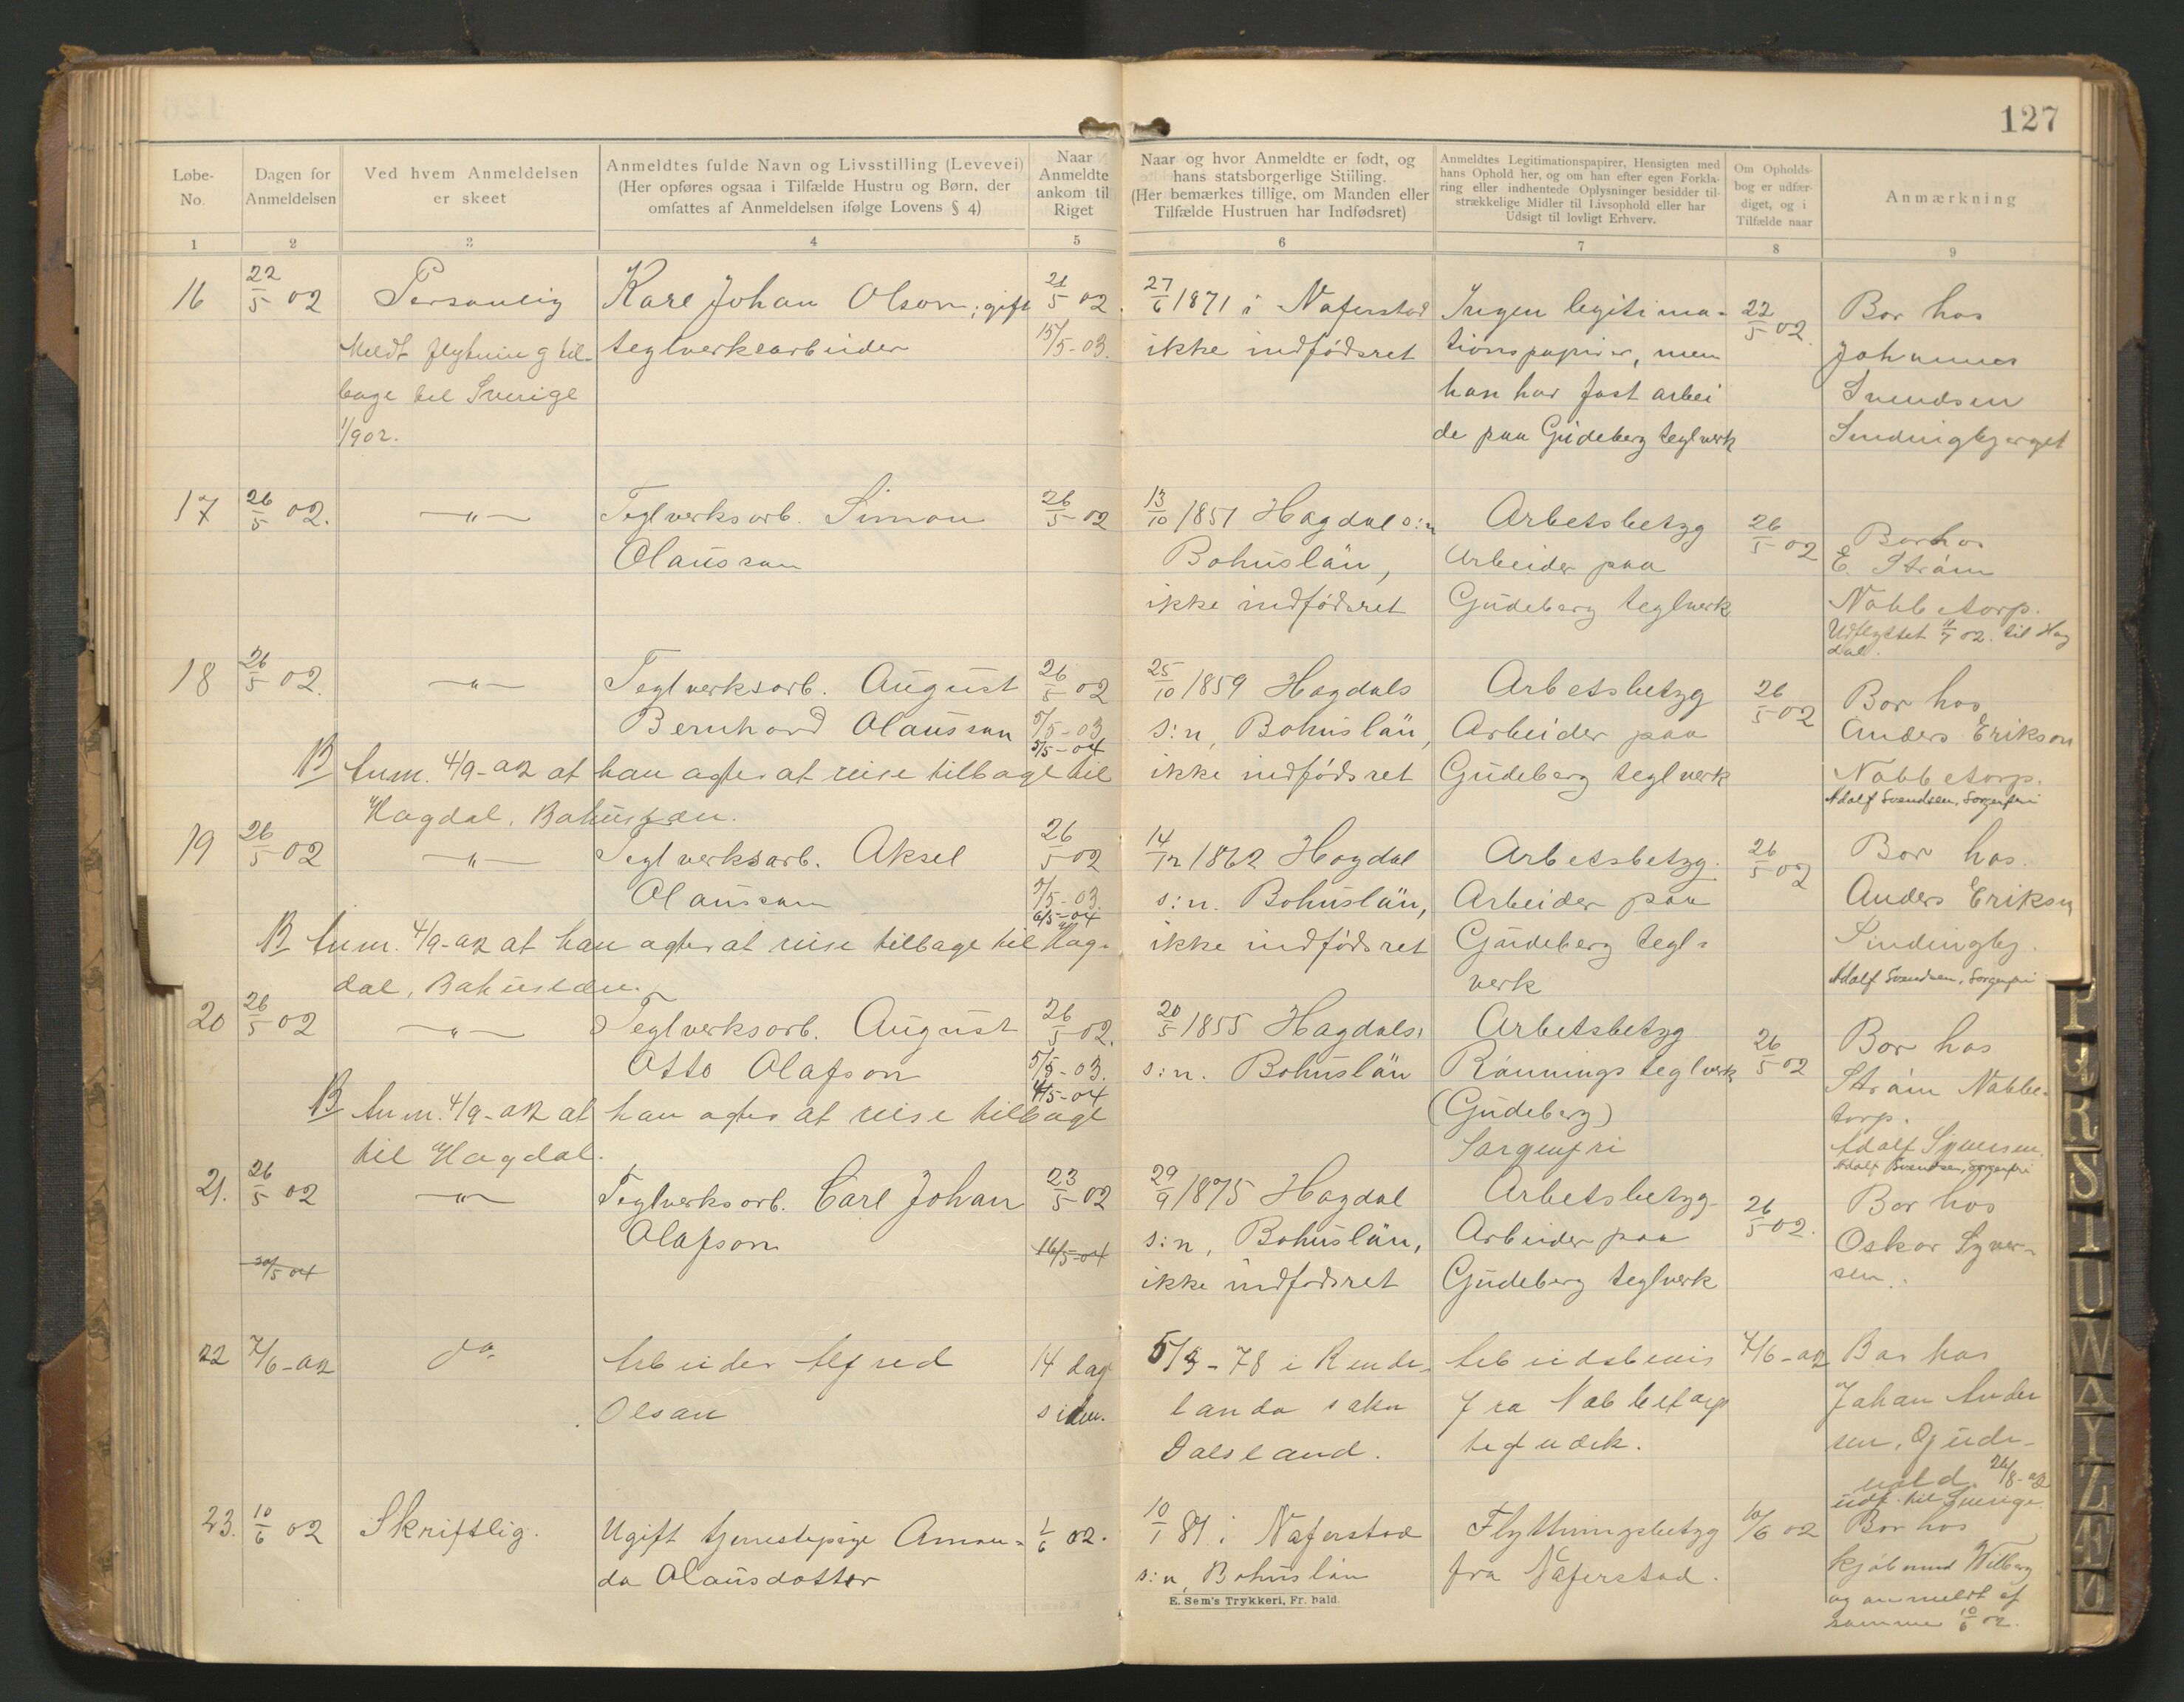 127
Løbe-No.
Dagen for Anmeldelsen
Ved hvem Anmeldelsen er skeet
Anmeldtes fulde Navn og Livsstilling (Levevei) (Her opføres ogsaa i Tilfælde Hustru og Børn, der omfattes af Anmeldelsen ifølge Lovens § 4)
Naar Anmeldte ankom til Riget
Naar og hvor Anmeldte er født, og hans statsborgerlige Stilling. (Her bemærkes tillige, om Manden eller Tilfælde Hustruen har Indfødsret)
Anmeldtes Legitimationspapirer, Hensigten med hans Ophold her, og om han efter egen Forklaring eller indhentede Oplysninger besidder tilstrækkelige Midler til Livsophold eller har Udsigt til lovligt Erhverv.
Om Opholdsbog er udfærdiget, og i Tilfælde naar
Anmærkning
1 2 3 4 5 6 7 8 9
16
22/5 02
Personlig
Meldt flytning til-
bage til Sverige
1/9 02.
Karl Johan Olson, gift
teglverksarbeider
21/5 02.
15/5-03.
27/6 1871 i Naferstad
ikke indfødsret
Ingen legitima-
tionspapirer, men
han har fast arbei
de paa Gudeberg teglverk
22/5 02.
Bor hos
Johannes
Svendsen
Sindingbjerget
17
26/5 02.
—"—
Teglverksarb. Simon
Olausson
26/5 02
13/10 1851 Hogdal s:n
Bohuslän,
ikke indfødsret
Arbetsbetyg
Arbeider paa
Gudeberg teglverk
26/5 02
Bor hos
E. Strøm
Nabbetorp.
Udflyttet 11/7 02. til Hog
dal.
18
26/5 02.
—"—
Teglverksarb. August
Bernhard Olausson
26/5 02
5/5-03
5/5-04
Anm. 4/9-02 at han agter at reise tilbage til
Hogdal, Bohuslæn.
25/10 1859 Hogdals
s:n, Bohuslän,
ikke indfødsret
Arbetsbetyg
Arbeider paa
Gudeberg teglverk
26/5 02
Bor hos
Anders Erikson
Nabbetorp.
Adolf Svendsen, Sorgenfri
19
26/5 02
—"—
Teglverksarb. Aksel
Olausson
26/5 02
5/5-03.
6/5-04
Anm. 4/9-02 at han agter at reise tilbage til Hog-
dal, Bohuslæn.
14/12 1862 Hogdal
s:n. Bohuslän,
ikke indfødsret
Arbetsbetyg.
Arbeider paa
Gudeberg tegl-
verk
26/5 02
Bor hos.
Anders Erikson
Sindingbj.
Adolf Svendsen, Sorgenfri
20
26/5 02
—"—
Teglverksarb. August
Otto Olafson
26/5 02.
5/5-03.
4/5-04
Anm. 4/9-02 at han agter at reise tilbage
til Hogdal.
20/5 1855 Hogdals
s:n. Bohuslän
Arbetsbetyg
Rønnings teglverk
(Gudeberg)
Sorgenfri
26/5 02
Bor hos
Strøm Nabbe-
torp.
Adolf Svensen.
Adolf Svendsen, Sorgenfri
21.
26/5 02
20/5 04
—"—
Teglverksarb. Carl Johan
Olafson
23/5 02
16/5-04
29/9 1875 Hogdal
s:n, Bohuslän,
ikke indfødsret
Arbetsbetyg
Arbeider paa
Gudeberg teglverk
26/5 02.
Bor hos
Oskar Syver-
sen.
22
7/6-02
do
Arbeider Alfred
Olsen
14 dag
siden.
5/3-78 i
landa sokn
Dalsland.
Arbeidsbevis
fra Nabbetorp
teglverk.
7/6-02
Bor hos
Johan Ander
sen, Gude-
26/8-02
udf. til Sverige.
23.
10/6 02
Skriftlig.
Ugift tjenestepige Aman-
da Olausdotter
1/6 02.
10/1 81 i Naferstad
s:n, Bohuslän
Flyttningsbetyg
fra Naferstad.
10/6 02
Bor hos
kjøbmand Wilberg
og anmeldt af
samme 10/6 02.
E. Sem's Trykkeri, Fr. hald.
P
R
S
T
U
W
Y
Z
Æ
Ø